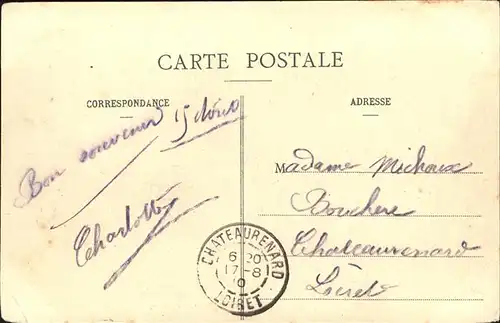 CARTE POSTALE
CORRESPONDANCE
ADRESSE
Bon souvenir 15 Août 10
Charlotte
Madame Michoux
Bouchère
Chateaurenard
Loiret
CHATEAURENARD
6 20
17 -8
10
LOIRET